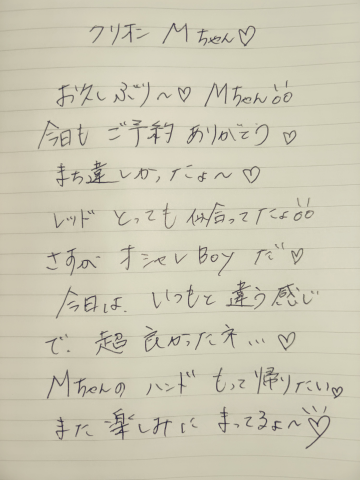 クリオン Mちゃん♡
お久しぶり〜♡ Mちゃん
今日も ご予約 ありがとう ♡
まち違しかったょ〜♡
レッド とっても 似合ってたょ
さすが オシャレBoy だ♡
今日は、いつもと 違う感じ
で、超 良かったネ...♡
Mちゃんの ハンド もって帰りたい♡
また 楽しみに まってるょ〜♡